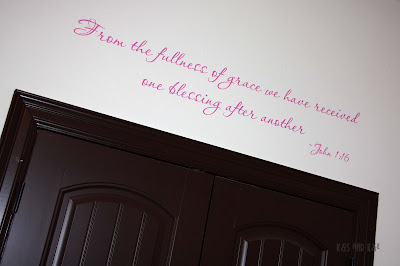 From the fullness of grace we have received
one blessing after another
~John 1:16